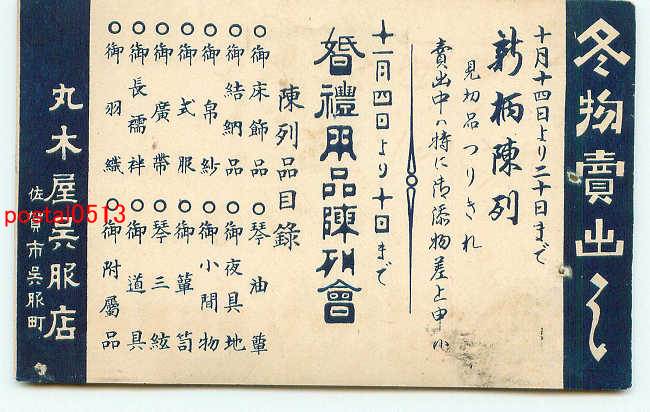 冬物賣出し
十月十四日より二十日まで
新柄陳列
見切品つりきれ
賣出中ハ特に御添物差上申候
十一月四日より十日まで
婚禮用品陳列會
陳列品目錄
御床飾品
琴油單
御結納品
御夜具地
御帛紗
御小間物
御式服
御簞笥
御廣帶
琴三絃
御長襦袢
御道具
御羽織
御附屬品
丸木屋呉服店
佐賀市呉服町
postal0513